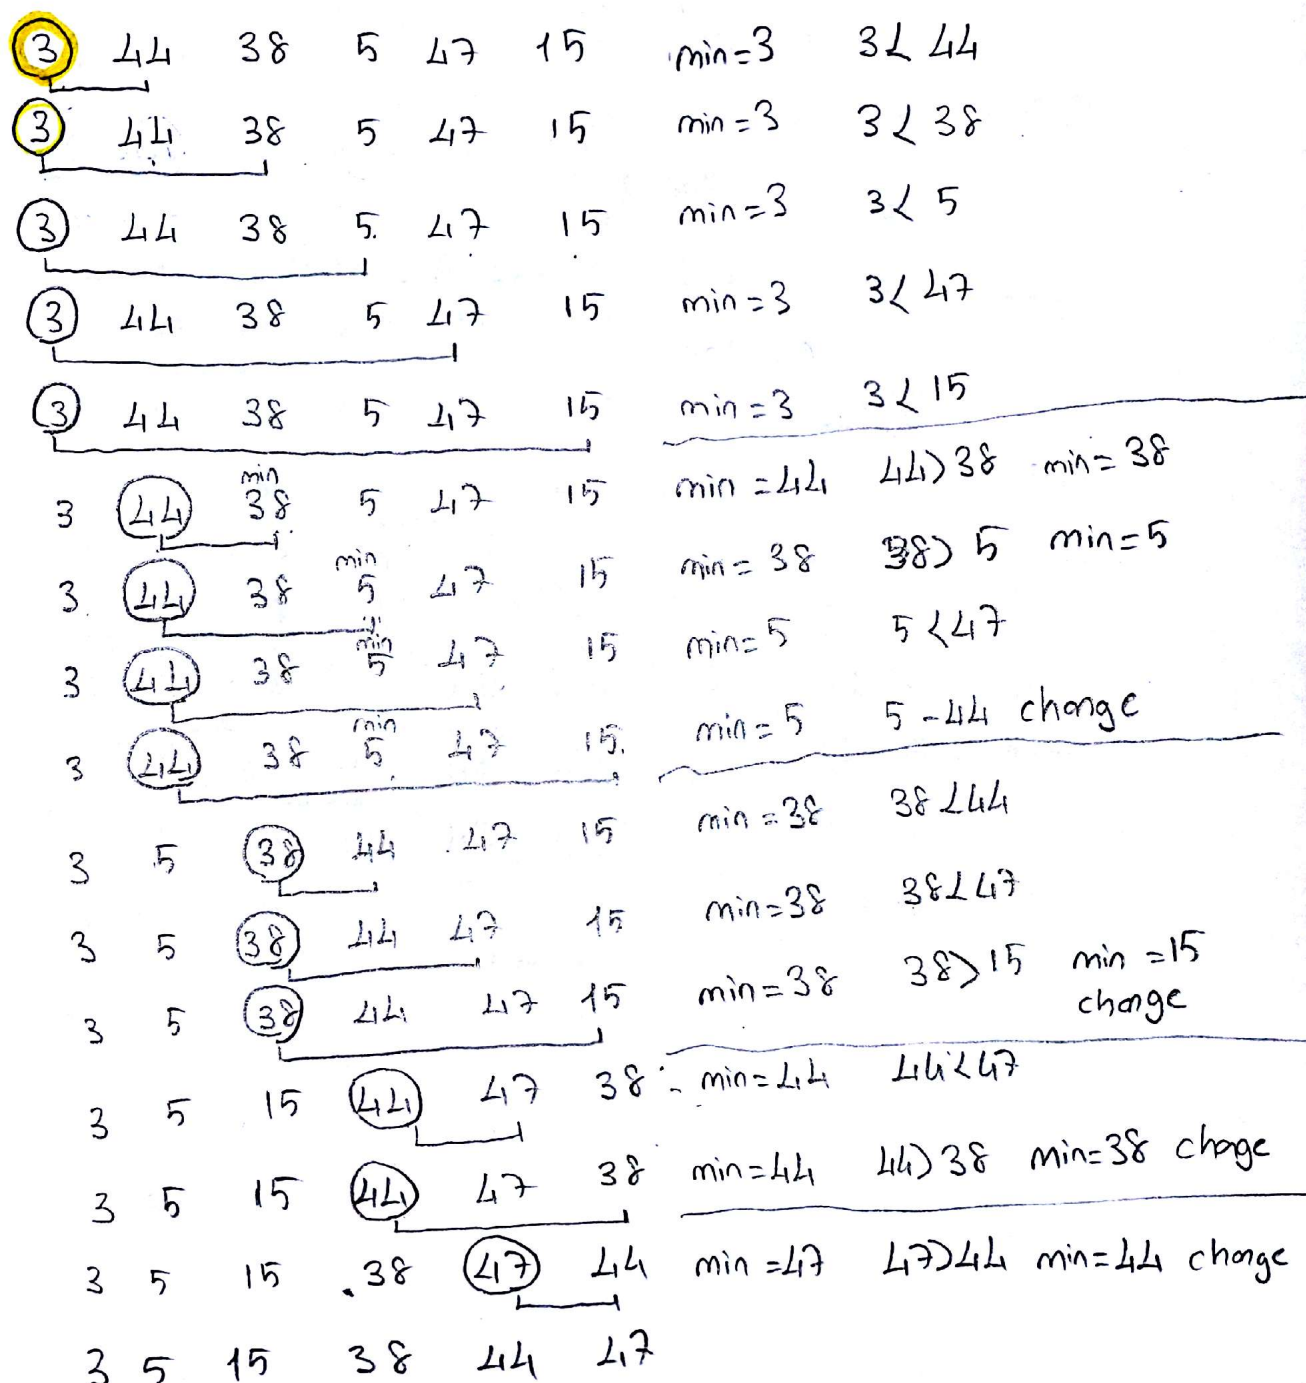 3 44 38 5 47 15 min=3 3<44
3 44 38 5 47 15 min=3 3<38
3 44 38 5 47 15 min=3 3<5
3 44 38 5 47 15 min=3 3<47
3 44 38 5 47 15 min=3 3<15
min
3 44 38 5 47 15 min=44 44>38 min=38
min
3 44 38 5 47 15 min=38 38>5 min=5
min
3 44 38 5 47 15 min=5 5<47
min
3 44 38 5 47 15 min=5 5-44 change
3 5 38 44 47 15 min=38 38<44
3 5 38 44 47 15 min=38 38<47
3 5 38 44 47 15 min=38 38>15 min=15
change
3 5 15 44 47 38 min=44 44<47
3 5 15 44 47 38 min=44 44>38 min=38 change
3 5 15 38 47 44 min=47 47>44 min=44 change
3 5 15 38 44 47